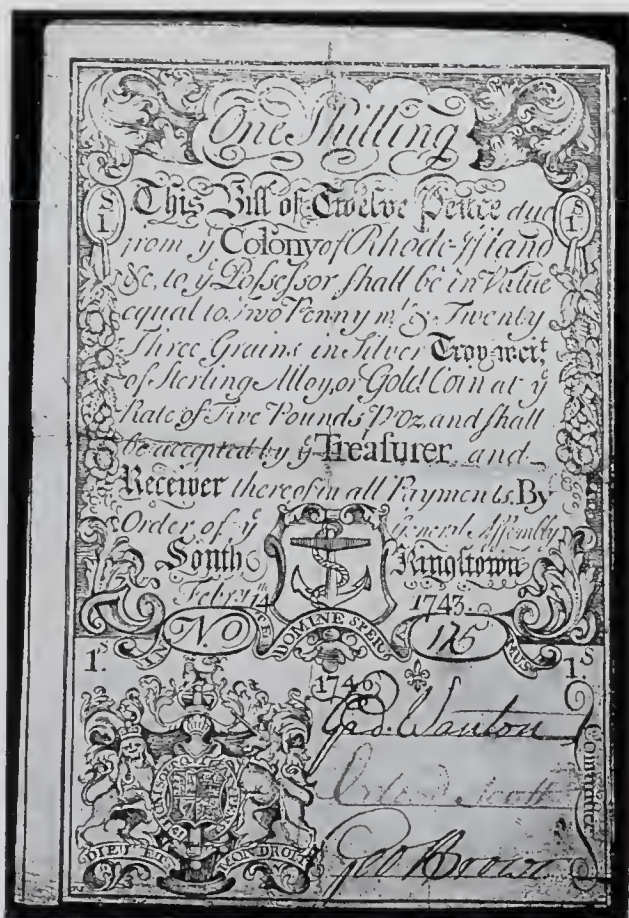 One Shilling
S
1.
This Bill of Twelve Pence due
S
1.
from yͤ Colony of Rhode-Iſland
&c, to yͤ Poſseſsor ſhall be in Value
equal to Two Penny wͭ & Twenty
Three Grains in Silver Troy-weiͭ.
of Sterling Alloy, or Gold Coin at yͤ
Rate of Five Pounds ⅌ Oz, and ſhall
be accepted by yͤ Treaſurer and
Receiver thereof in all Payments. By
Order of yͤ General Aſsembly
South Kingſtown
Febry. 1743.
N.O 125
IN TE DOMINE SPERAMUS
1.S 1.S
1746
Gid. Wanton
Scott
Geo Brown
Committee
DIEU ET MON DROIT